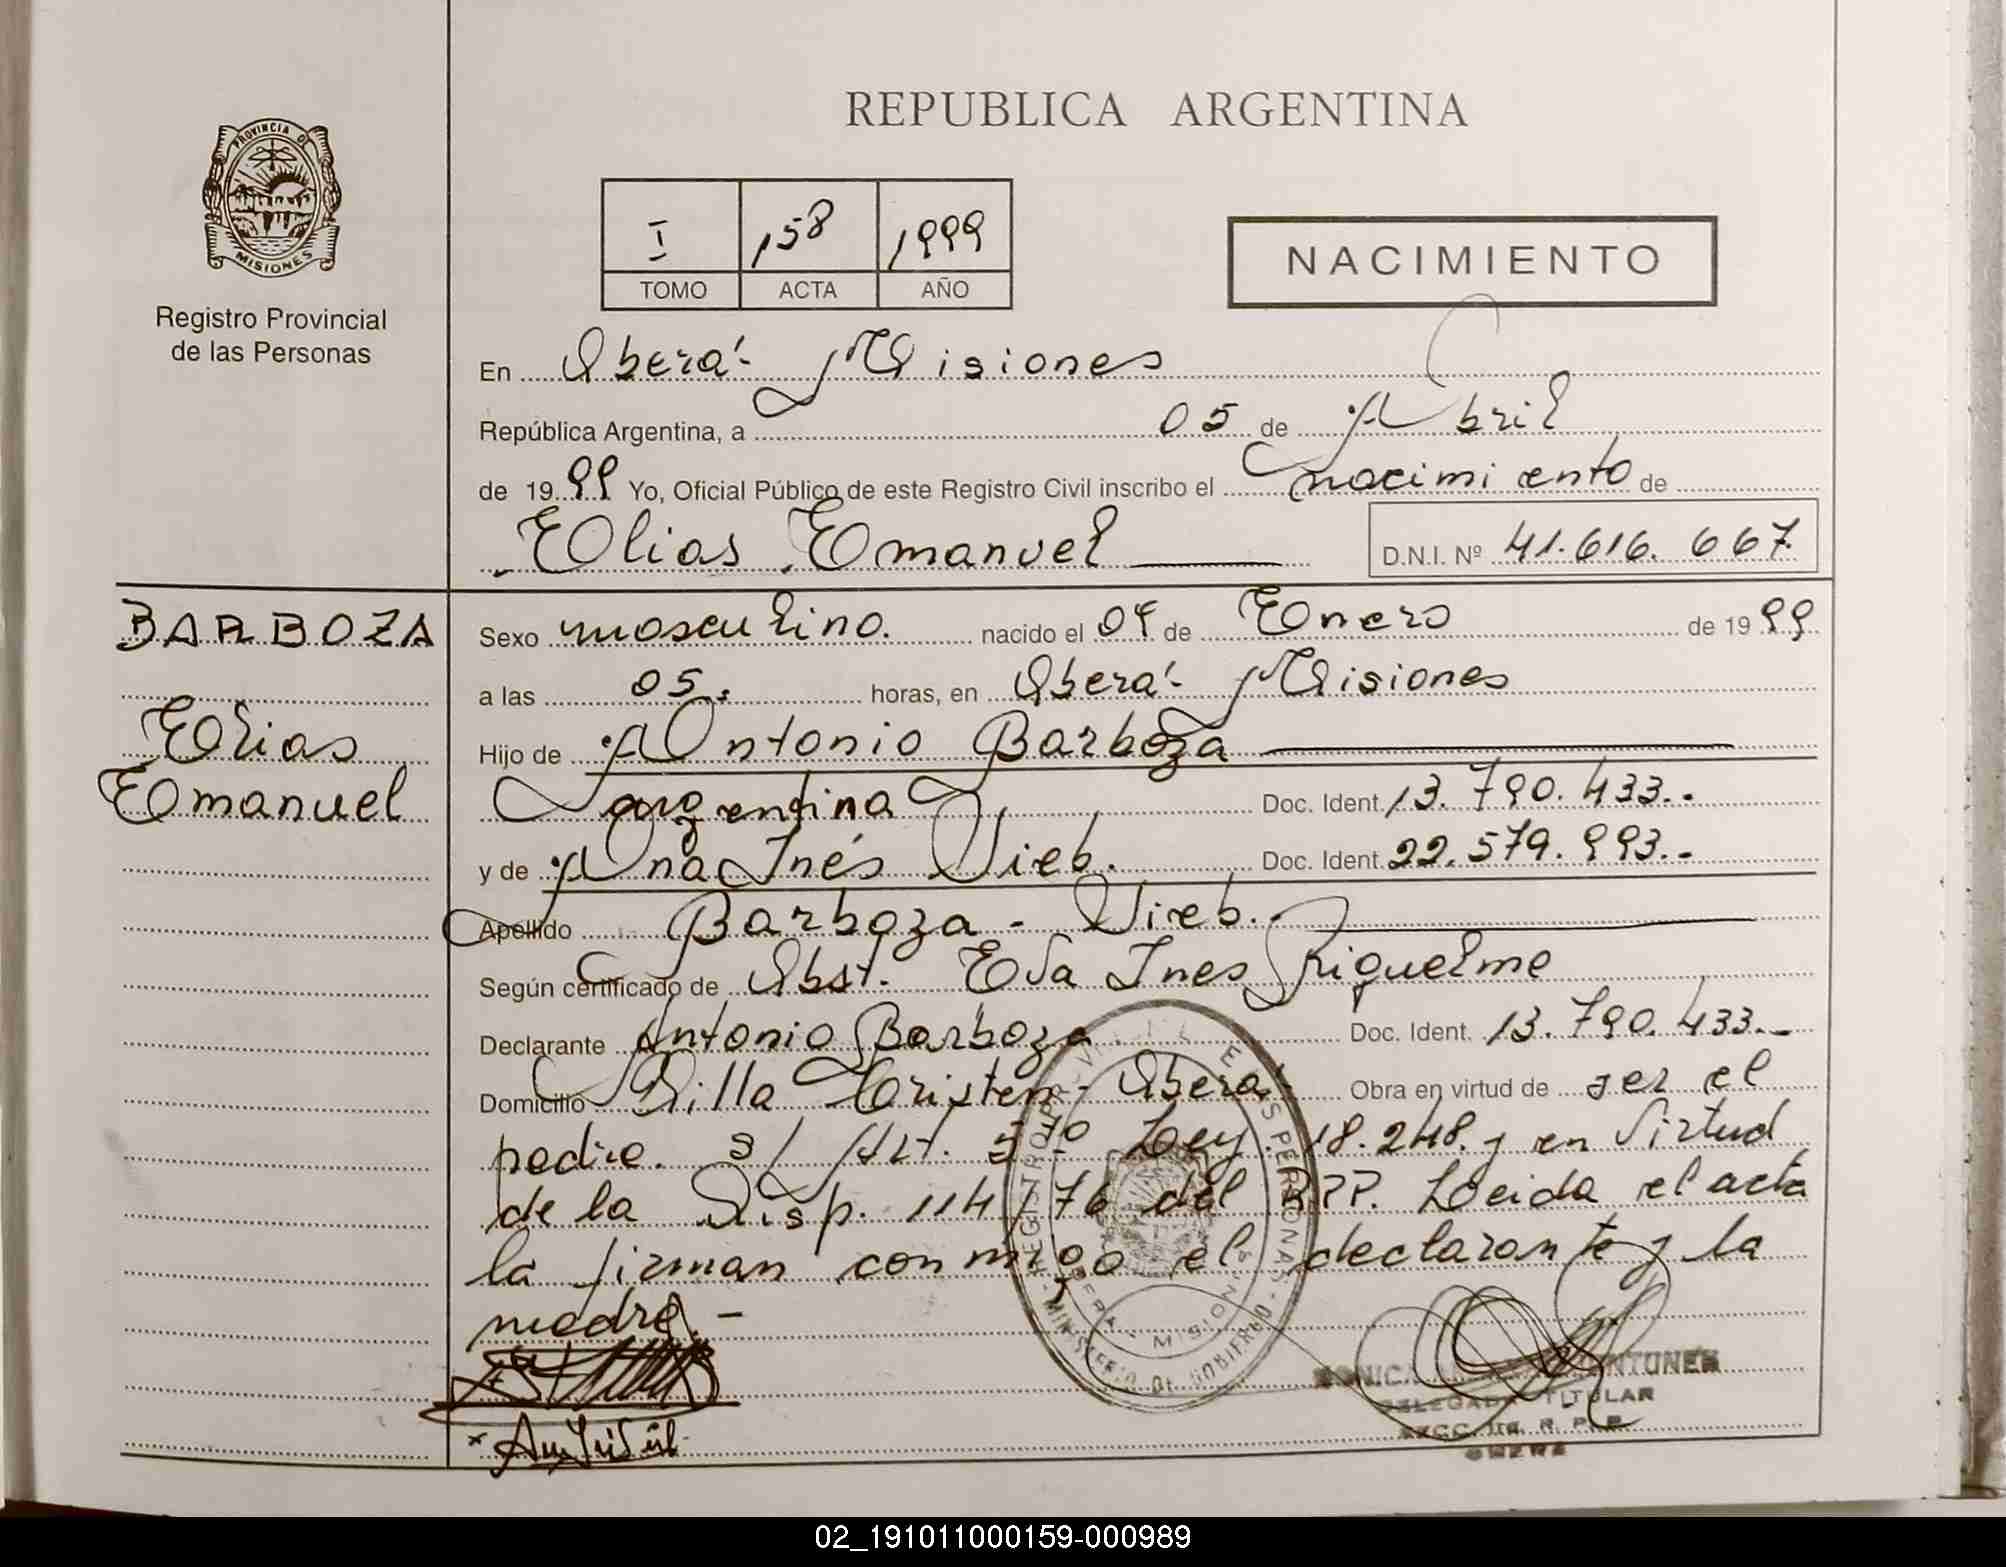 REPUBLICA ARGENTINA
PROVINCIA DE
MISIONES
Registro Provincial
de las Personas
I 158 1999
TOMO ACTA AÑO
NACIMIENTO
En Oberá Misiones
República Argentina, a 05 de Abril
de 1999 Yo, Oficial Público de este Registro Civil inscribo el nacimiento de
Elias Emanuel D.N.I. Nº 41.616.667.
BARBOZA
Elias
Emanuel
Sexo masculino. nacido el 04 de Enero de 1999
a las 05. horas, en Oberá Misiones
Hijo de Antonio Barboza
argentina Doc. Ident. 13.790.433.-
y de Ana Inés Vieb. Doc. Ident. 22.579.993.-
Apellido Barboza - Vieb.-
Según certificado de Obst. Eva Ines Riquelme
Declarante Antonio Barboza Doc. Ident. 13.790.433.-
Domicilio Villa Cristen - Oberá Obra en virtud de ser el
padre. s/ Art. 5to Ley 18.248. y en virtud
de la Disp. 114/76 del RPP. Leida el acta
la firman conmigo el declarante y la
madre.-
REGISTRO PROVINCIAL DE LAS PERSONAS
MINISTERIO DE GOBIERNO
OBERA - MISIONES
MONICA ANTUNEZ
DELEGADA TITULAR
R. P. P.
OBERA
02_191011000159-000989